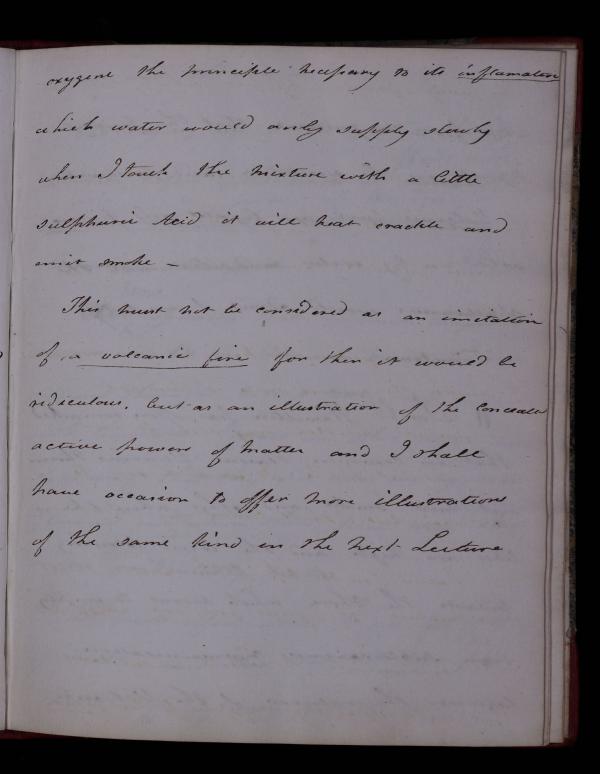 oxygene the principle necessary to its inflamation
which water would only supply slowly
when I touch the mixture with a little
sulphuric Acid it will heat crackle and
emit smoke –
This must not be considered as an imitation
of a volcanic fire for then it would be
ridiculous. but as an illustration of the conceald
active powers of matter and I shall
have occasion to offer more illustrations
of the same kind in the next Lecture